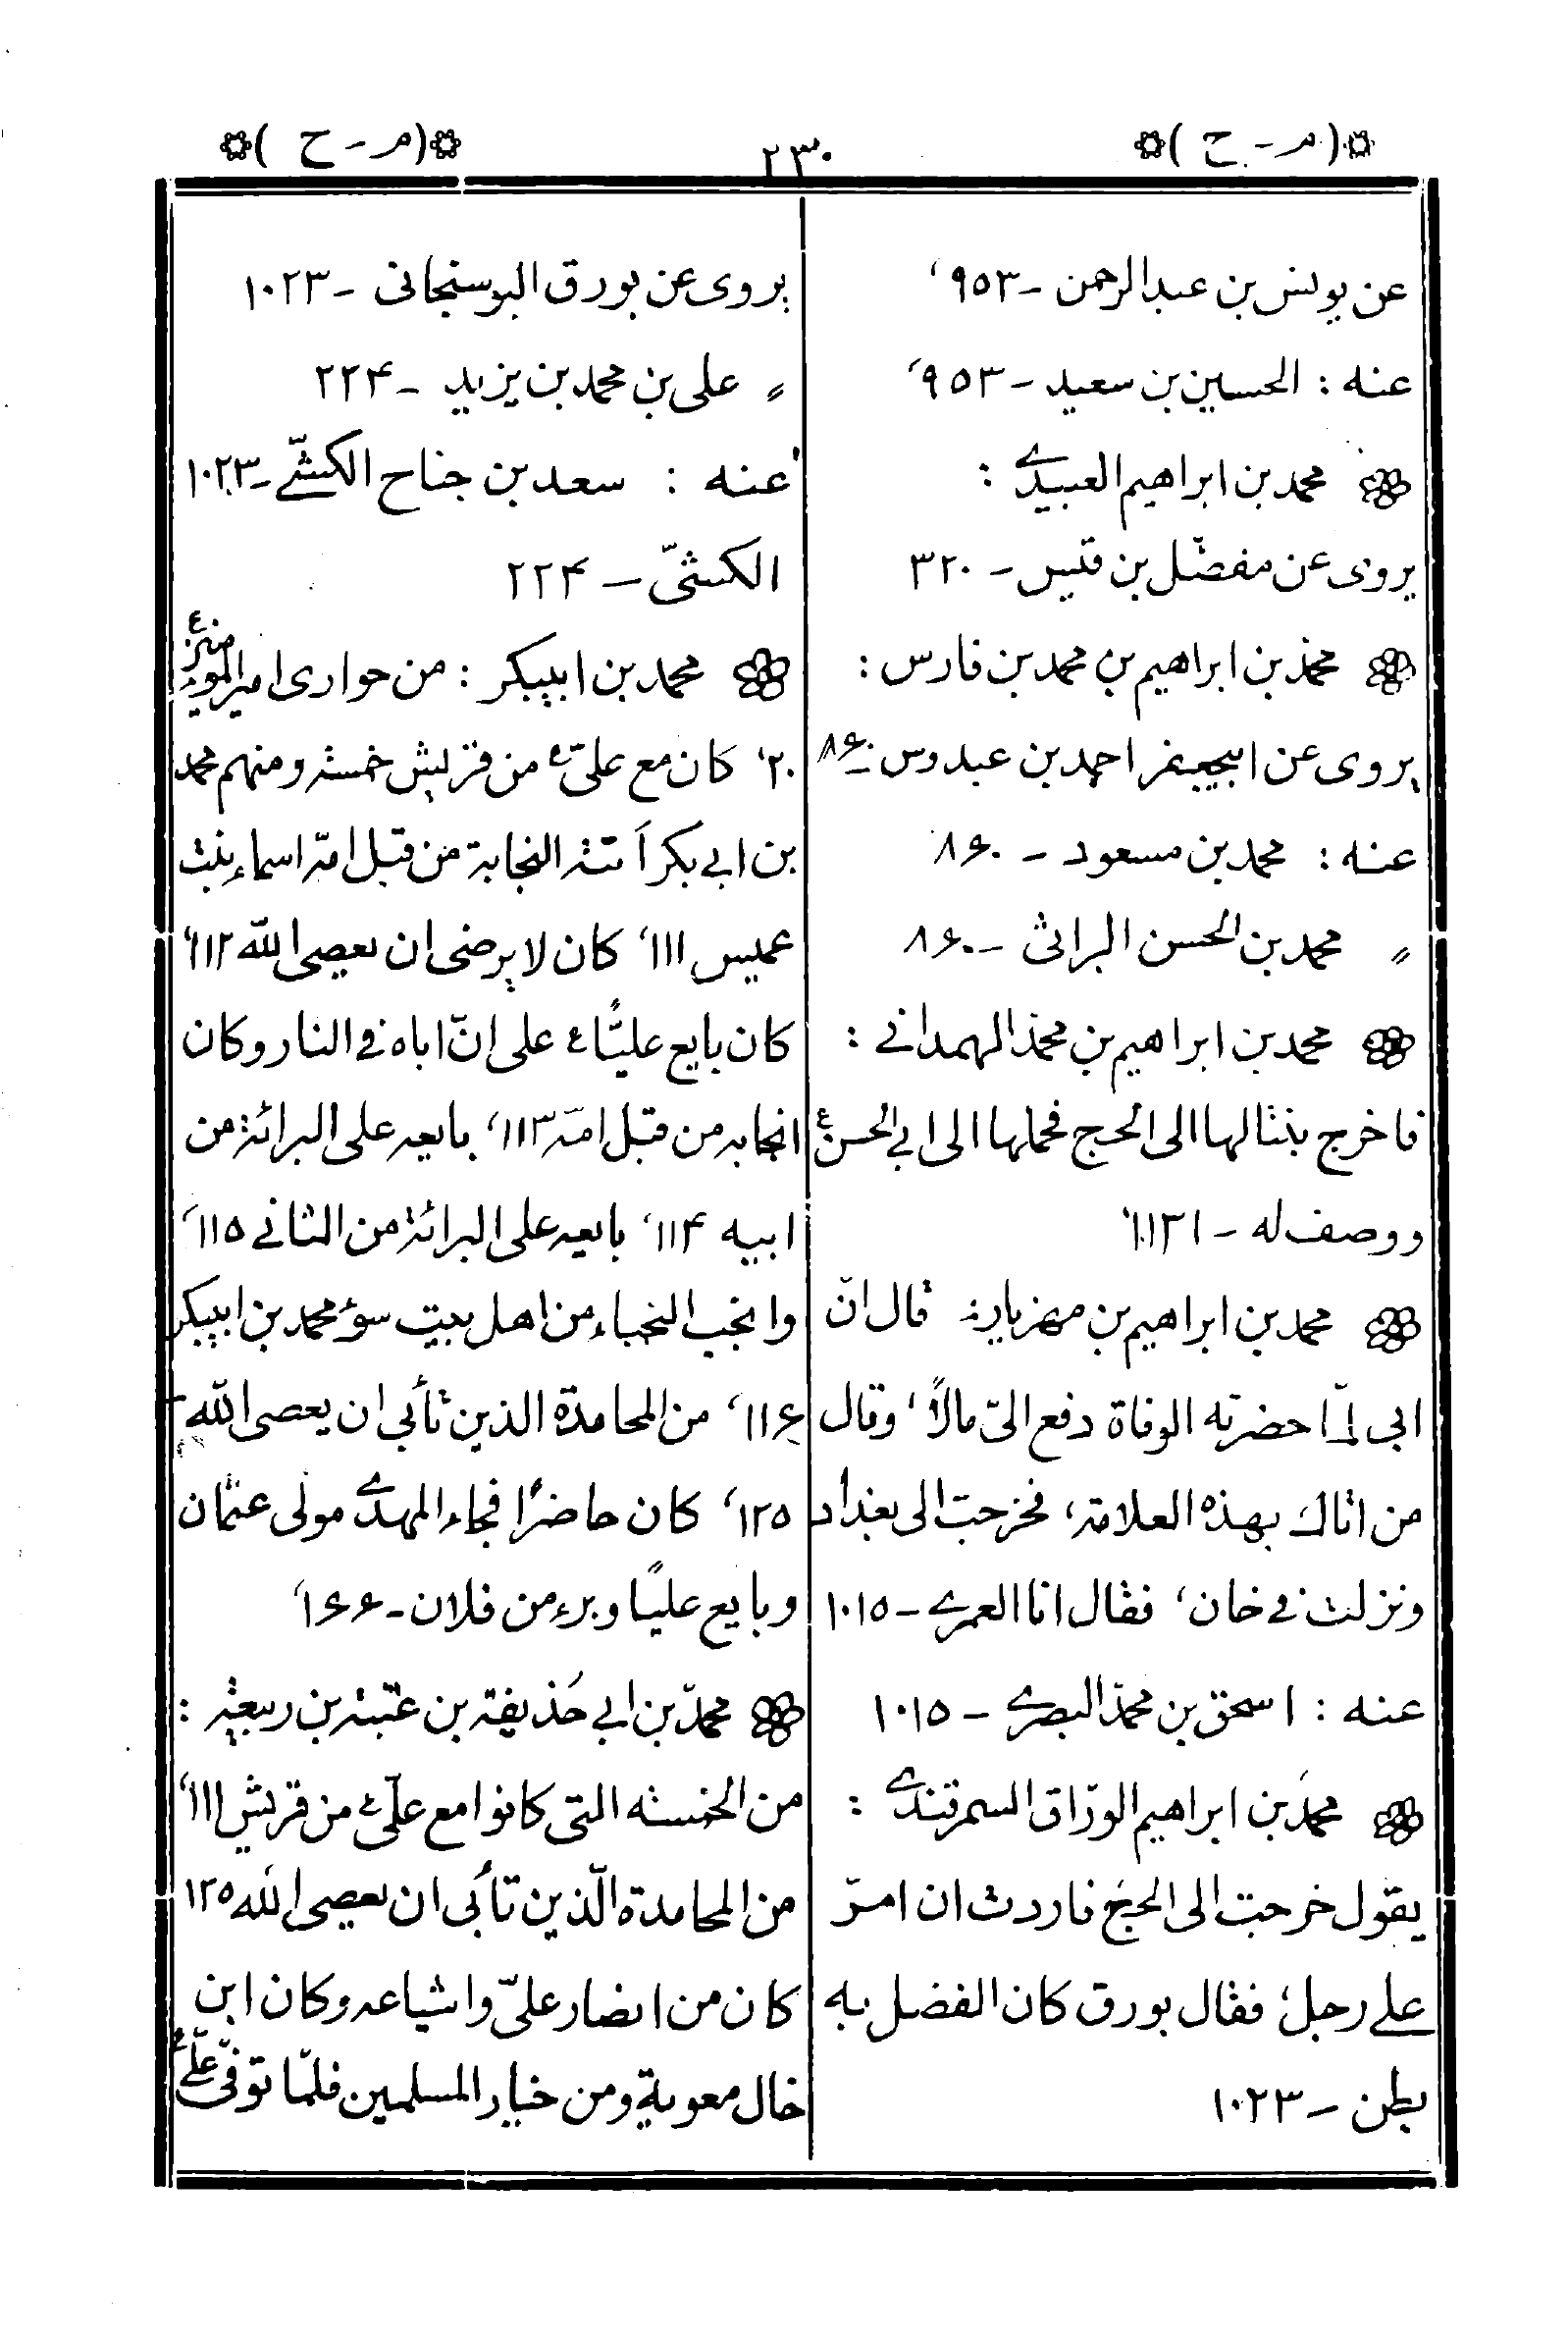 (م - ح)
٢٣٠
(م - ح)
عن يونس بن عبدالرحمن - ٩٥٣،
عنه : الحسين بن سعيد - ٩٥٣،
محمد بن ابراهيم العبيدي :
يروى عن مفضّل بن قيس - ٣٢٠
محمد بن ابراهيم بن محمد بن فارس :
يروى عن ابيجعفر احمد بن عبدوس - ٨۶٠
عنه : محمد بن مسعود - ٨۶٠
〃 محمد بن الحسن البراثى - ٨۶٠
محمد بن ابراهيم بن محمد الهمدانى :
فاخرج بنتا لها الى الحج فحملها الى ابى الحسن ع
ووصف له - ١١٣١،
محمد بن ابراهيم بن مهزيار: قال انّ
ابى لمّا حضرته الوفاة دفع الىّ مالاً، وقال
من اتاك بهذه العلامة، فخرجت الى بغداد
ونزلت فى خان، فقال انا العمرى - ١٠١٥
عنه : اسحق بن محمد البصرى - ١٠١٥
محمد بن ابراهيم الورّاق السمرقندى :
يقول خرجت الى الحج فاردت ان امرّ
على رجل؛ فقال بورق كان الفضل به
بطن - ١٠٢٣
يروى عن بورق البوسنجانى - ١٠٢٣
〃 على بن محمد بن يزيد - ٢٢۴
عنه : سعد بن جناح الكشّى - ١٠٢٣
الكشّىّ - ٢٢۴
محمد بن ابيبكر : من حوارى امير المؤمنين ع
٢٠، كان مع علىّ ع من قريش خمسة ومنهم محمد
بن ابى بكر أتته النجابة من قبل امّه اسماء بنت
عميس ١١١، كان لا يرضى ان يعصى الله ١١٢،
كان بايع عليّاً ع على انّ اباه فى النار وكان
انجابه من قبل امّه ١١٣، بايعه على البرائة من
ابيه ١١۴، بايعه على البرائة من الثانى ١١٥،
وانجب النجباء من اهل بيت سوء محمد بن ابيبكر
١١۶، من المحامدة الذين تأبى ان يعصى الله -
١٢٥، كان حاضراً فجاء المهدى مولى عثمان
وبايع علياً وبرء من فلان - ١۶۶،
محمد بن ابى حذيفة بن عتبة بن ربيعة :
من الخمسة التى كانوا مع علىّ ع من قريش ١١١،
من المحامدة الّذين تأبى ان يعصى الله ١٢٥
كان من انصار علىّ واشياعه وكان ابن
خال معوية ومن خيار المسلمين فلمّا توفّى علىّ ع